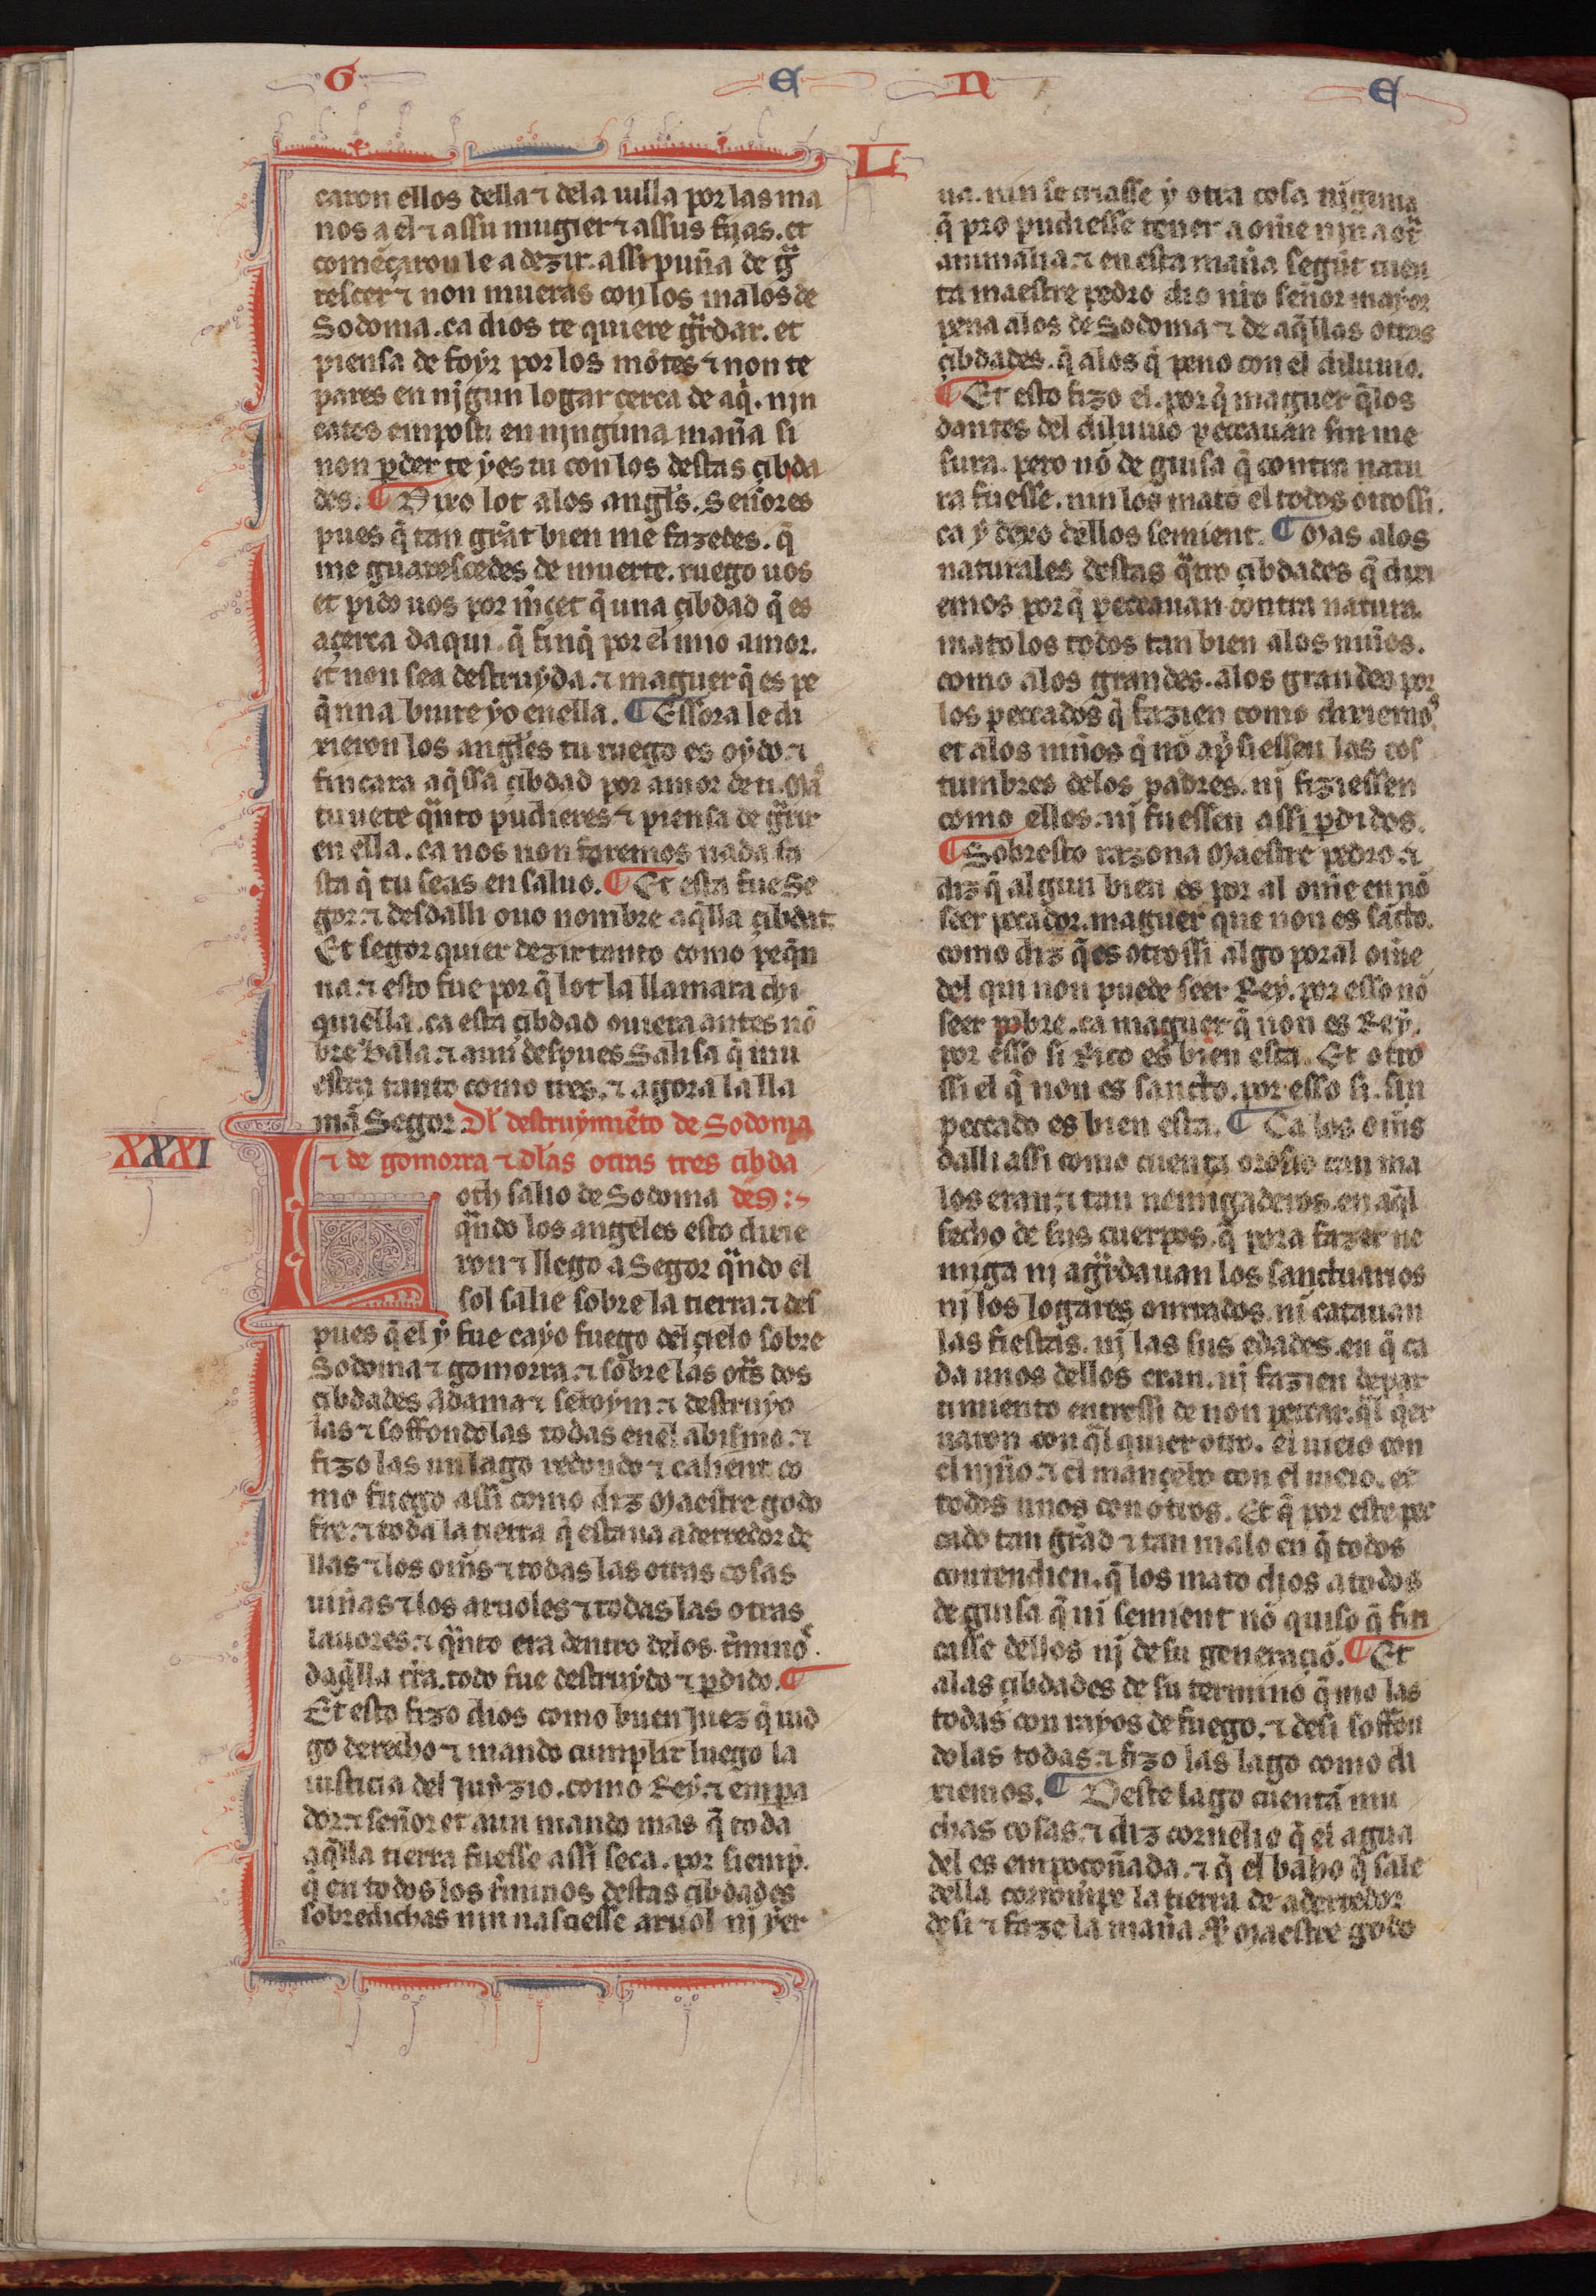 G E N E
L
caron ellos della ⁊ dela uilla por las ma
nos a el ⁊ assu mugier ⁊ assus fijas. et
começaron le a dezir. assi puña de gͣ
rescer ⁊ non mueras con los malos de
Sodoma. ca dios te quiere gͣrdar. et
piensa de foyr por los mõtes ⁊ non te
pares en njgun logar çerca de aq̃. njn
cates empos ti en njnguna mañ̃a si
non ꝑder te yes tu con los destas çibda
des. ¶ Dixo lot alos angl̃s. Señores
pues q̃ tan grãt bien me fazedes. q̃
me guarescedes de muerte. ruego uos
et pido uos por m̃çet q̃ una çibdad q̃ es
açerca daqui. q̃ finq̃ por el mio amor.
et non sea destruyda. ⁊ maguer q̃ es pe
q̃nna biuire yo en ella. ¶ Essora le di
xieron los angl̃es tu ruego es oydo. ⁊
fincara aq̃ssa çibdad por amor de ti. Maˢ
tu uete qͣnto pudieres ⁊ piensa de gͣrir
en ella. ca nos non faremos nada fa
sta q̃ tu seas en saluo. ¶ Et esta fue Se
gor. ⁊ desdalli ouo nombre aq̃lla çibdat.
Et segor quier dezir tanto como peq̃n
na. ⁊ esto fue por q̃ lot la llamara chi
quiella. ca esta çibdad ouiera antes nõ
bre Bala. ⁊ aun despues Salisa q̃ mu
estra tanto como tres. ⁊ agora la lla
mã Segor. Dl̃ destruymiẽto de Sodoma
XXXI
⁊ de gomorra ⁊ dl̃as otras tres cibda
Loth salio de Sodoma des :~
qͣndo los angeles esto dixie
ron ⁊ llego a Segor qͣndo el
sol salie sobre la tierra. ⁊ des
pues q̃ el y fue cayo fuego del çielo sobre
Sodoma ⁊ gomorra. ⁊ sobre las otͣs dos
çibdades Adama ⁊ seboym. ⁊ destruyo
las ⁊ soffondolas todas en el abismo. ⁊
fizo las un lago redondo ⁊ calient. co
mo fuego assi como diz Maestre godo
fre. ⁊ toda la tierra q̃ estaua aderredor de
llas ⁊ los om̃s ⁊ todas las otras cosas
uiñas ⁊ los aruoles ⁊ todas las otras
lauores. ⁊ qͣnto era dentro delos t̃minoˢ.
daq̃lla tr̃a. todo fue destruydo ⁊ ꝑdido. ¶
Et esto fizo dios como buen Juez q̃ iud
go derecho ⁊ mando cumplir luego la
iusticia del Juyzio. como Rey. ⁊ empa
dor. ⁊ señor et aun mando mas q̃ toda
aq̃lla tierra fuesse assi seca. por siemp̃.
q̃ en todos los t̃minos destas çibdades
sobredichas nin nasciesse aruol nj yer
ua. nin se criasse y otra cosa njguna
q̃ pro pudiesse tener a om̃e njn a otͣ
animalia. ⁊ en esta mañ̃a segũt cuen
ta maestre pedro dio nr̃o señor mayor
pena alos de Sodoma ⁊ de aq̃llas otras
çibdades. q̃ alos q̃ peno con el diluuio.
¶ Et esto fizo el. por q̃ maguer q̃ los
dantes del diluuio peccauan sin me
sura. pero nõ de guisa q̃ contra natu
ra fuesse. nin los mato el todos otrossi.
ca y dexo dellos semient. ¶ Mas alos
naturales destas qͣtro çibdades q̃ dixi
emos por q̃ peccauan contra natura.
mato los todos tan bien alos niños.
como alos grandes. alos grandes por
los peccados q̃ fazien como dixiemoˢ
et alos niños q̃ nõ ap̃siessen las cos
tumbres delos padres. nj fiziessen
como ellos. nj fuessen assi ꝑdidos.
¶ Sobresto razona Maestre pedro. ⁊
diz q̃ algun bien es por al om̃e en nõ
seer peccador. maguer que non es sãcto.
como diz q̃ es otrossi algo poral om̃e
del qui non puede seer Rey. por esso nõ
seer pobre. ca maguer q̃ non es Rey.
por esso si Rico es bien esta. Et otro
ssi el q̃ non es sancto. por esso si. sin
peccado es bien esta. ¶ Ca los om̃s
dalli assi como cuenta orosio tan ma
los eran. ⁊ tan nemigaderos. en aq̃l
fecho de sus cuerpos. q̃ pora fazer ne
miga nj agͣrdauan los sanctuarios
nj los logares onrrados. nj catauan
las fiestas. nj las sus edades. en q̃ ca
da unos dellos eran. nj fazien depar
timiento entressi de non peccar. q̃l qer
uaron con q̃l quier otro. el uieio con
el njño. ⁊ el mançebo con el uieio. et
todos unos con otros. Et q̃ por este pec
cado tan grãd ⁊ tan malo en q̃ todos
contendien. q̃ los mato dios a todos
de guisa q̃ nj semient nõ quiso q̃ fin
casse dellos nj de su generaciõ. ¶ Et
alas çibdades de su termino q̃mo las
todas con rayos de fuego. ⁊ desi soffon
dolas todas. ⁊ fizo las lago como di
xiemos. ¶ Deste lago cuentã mu
chas cosas. ⁊ diz cornelio q̃ el agua
del es empoçoñada. ⁊ q̃ el baho q̃ sale
della corrompe la tierra de aderredor
de si ⁊ faze la mañ̃a. ¶ Maestre godo